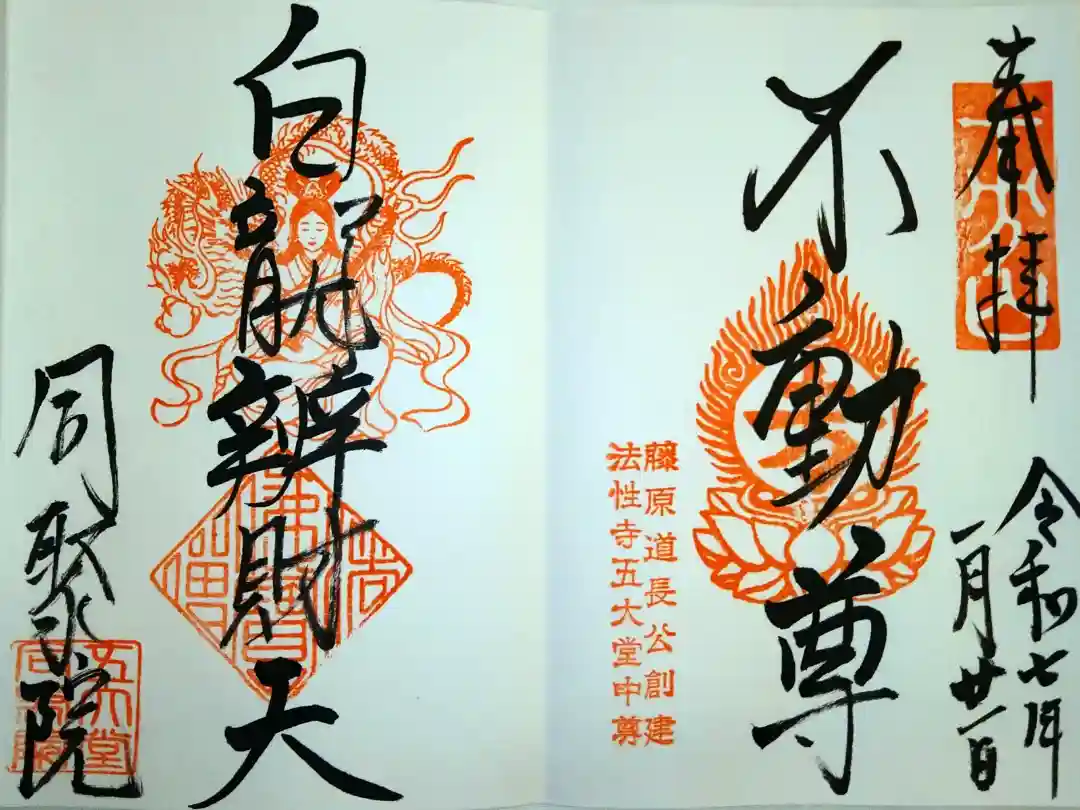 奉拝
令和七年
一月廿一日
不動尊
藤原道長公創建
法性寺五大堂中尊
白龍辨財天
同聚院